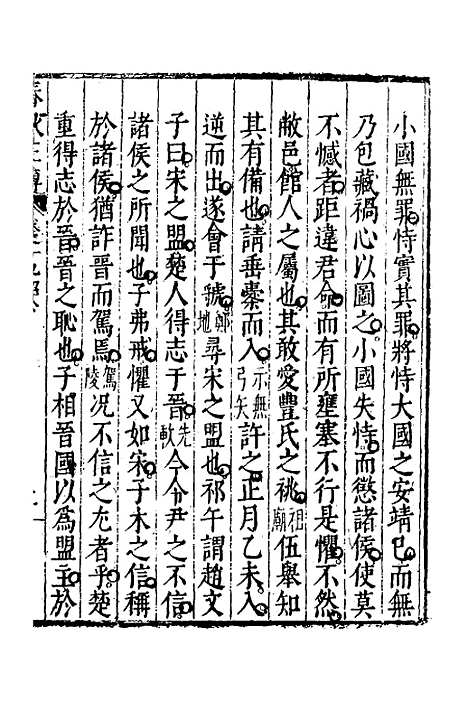 小國無罪恃實其罪將恃大國之安靖己而無
乃包藏禍心以圖之小國失恃而懲諸侯使莫
不憾者距違君命而有所壅塞不行是懼不然
敝邑館人之屬也其敢愛豐氏之祧祖廟伍舉知
其有備也請垂櫜而入示無弓矢許之正月乙未入
逆而出遂會于虢鄭地尋宋之盟也祁午謂趙文
子曰宋之盟楚人得志于晉先軟今令尹之不信
諸侯之所聞也子弗戒懼又如宋子木之信稱
於諸侯猶詐晉而駕焉駕陵况不信之尤者乎楚
重得志於晉晉之恥也子相晉國以為盟主於